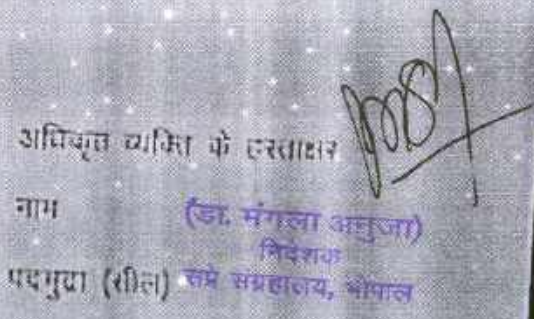 अधिकृत व्यक्ति के हस्ताक्षर
नाम (डा. मंगला अनुजा)
निदेशक
पदमुद्रा (सील) सप्रे संग्रहालय, भोपाल